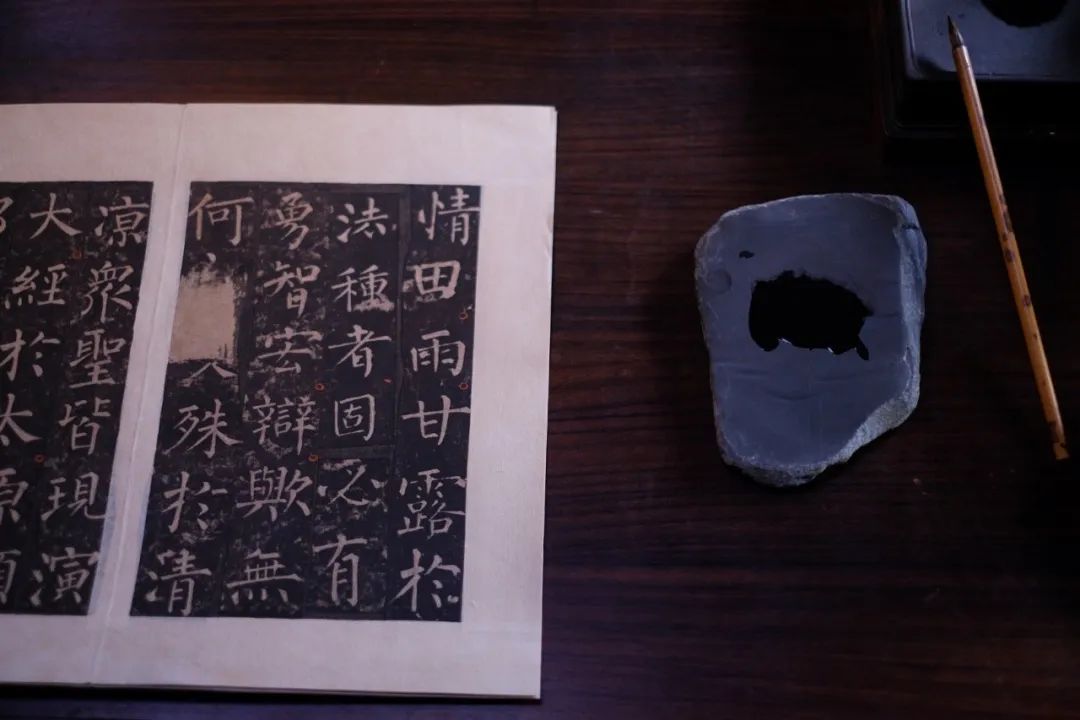 情田雨甘露於
法種者固必有
勇智宏辯歟無
何殊於清
涼衆聖皆現演
大經於太原